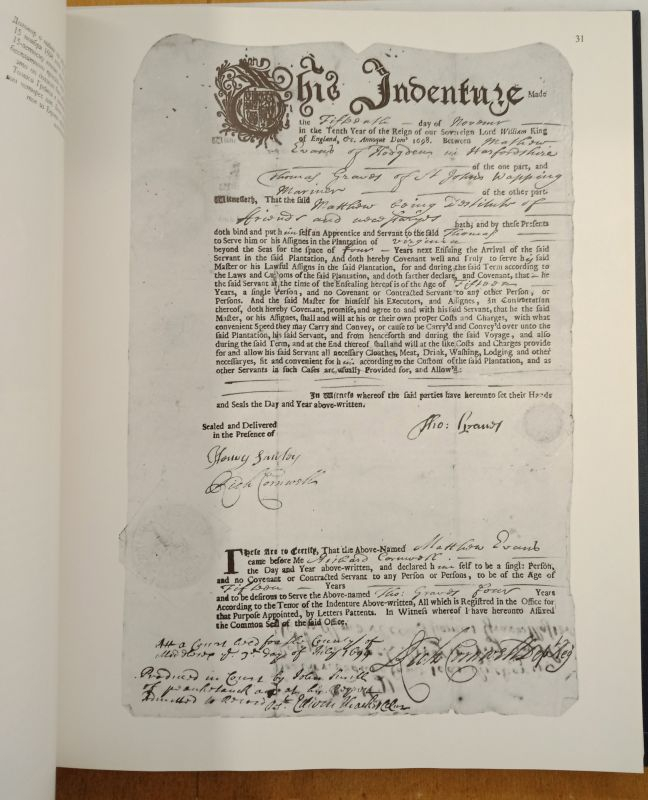 31
This Indenture Made
the Fifteenth day of Novemr
in the Tenth Year of the Reign of our Sovereign Lord William King
of England, &c. Annoque Dom' 1698. Between Mathew
Evans of Hodgden in Harfordshire
of the one part, and
Thomas Graves of St Johns Wapping
Mariner of the other part.
Witnesseth, That the said Matthew being destitute of
friends and
hath; and by these Presents
doth bind and put himself an Apprentice and Servant to the said Thomas
to Serve him or his Assignes in the Plantation of virginia
beyond the Seas for the space of four Years next Ensuing the Arrival of the said
Servant in the said Plantation, And doth hereby Covenant well and Truly to serve his said
Master or his Lawful Assigns in the said Plantation, for and during the said Term according to
the Laws and Customs of the said Plantation, and doth farther declare, and Covenant, that he
the said Servant at the time of the Ensealing hereof is of the Age of Fifteen
Years, a single Person, and no Covenant or Contracted Servant to any other Person, or
Persons. And the said Master for himself his Executors, and Assignes, in Consideration
thereof, doth hereby Covenant, promise, and agree to and with his said Servant, that he the said
Master, or his Assignes, shall and will at his or their own proper Costs and Charges, with what
convenient Speed they may Carry and Convey, or cause to be Carry'd and Convey'd over unto the
said Plantation, his said Servant, and from henceforth and during the said Voyage, and also
during the said Term, and at the End thereof shall and will at the like Costs and Charges provide
for and allow his said Servant all necessary Cloathes, Meat, Drink, Washing, Lodging and other
necessaryes, fit and convenient for him according to the Custom of the said Plantation, and as
other Servants in such Cases are usually Provided for, and Allow'd:
In Witness whereof the said parties have hereunto set their Hands
and Seals the Day and Year above-written.
Sealed and Delivered
in the Presence of
Tho: Graves
Rich Cornwell
These Are to Certify, That the Above-Named Matthew Evans
came before Me Richard Cornwell
the Day and Year above-written, and declared himself to be a single Person,
and no Covenant or Contracted Servant to any Person or Persons, to be of the Age of
Fifteen Years
and to be desirous to Serve the Above-named Tho: Graves four Years
According to the Tenor of the Indenture Above-written, All which is Registred in the Office for
that Purpose Appointed, by Letters Pattents. In Witness whereof I have hereunto Affixed
the Common Seal of the said Office.
Att a Court held for the County of
day of July 1699
Produced in Court by John Smith
of and at his
Admitted to Record